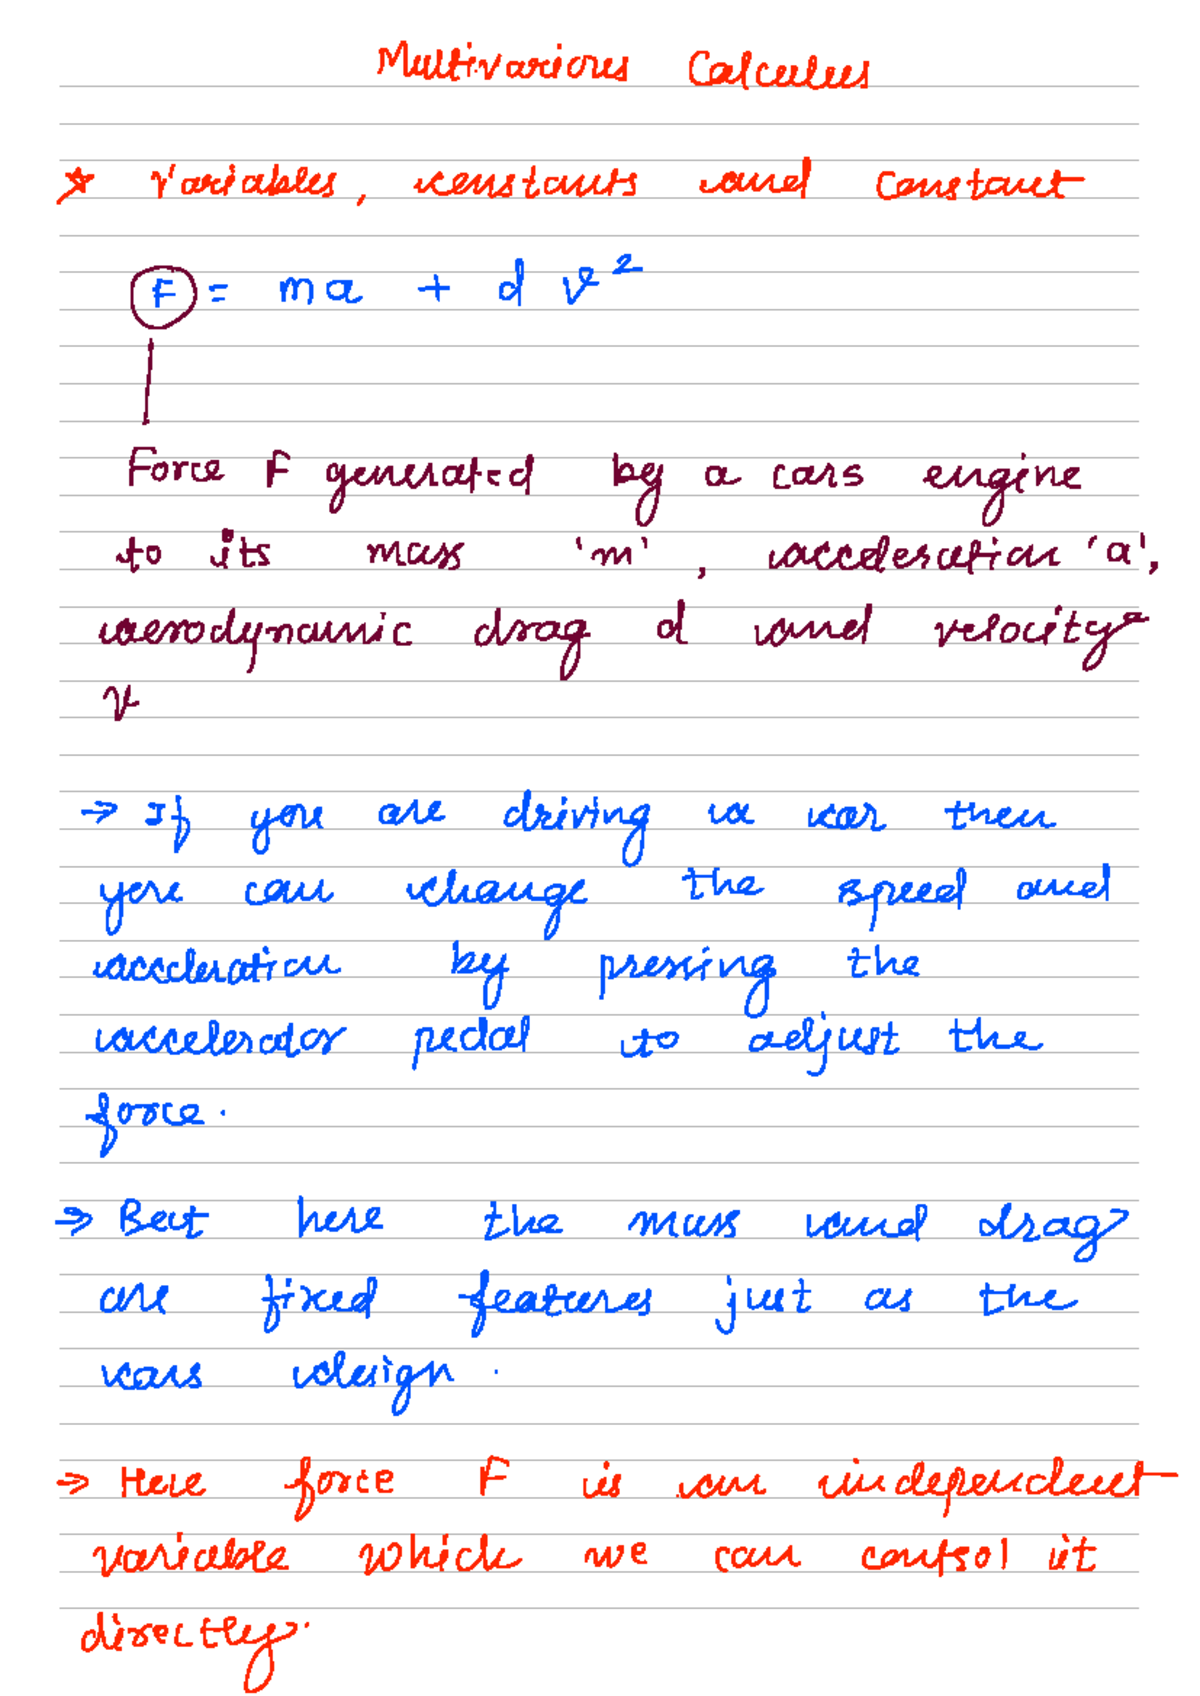 Multivarious Calculus
* Variables, constants and Constant
F = ma + d v²
Force F generated by a cars engine
to its mass 'm', acceleration 'a',
aerodynamic drag d and velocity
v
→ If you are driving a car then
you can change the speed and
accleration by pressing the
accelerador pedal to adjust the
force.
⇒ But here the mass and drag
are fixed features just as the
cars design.
⇒ Here force F is an independent
variable which we can control it
directly.